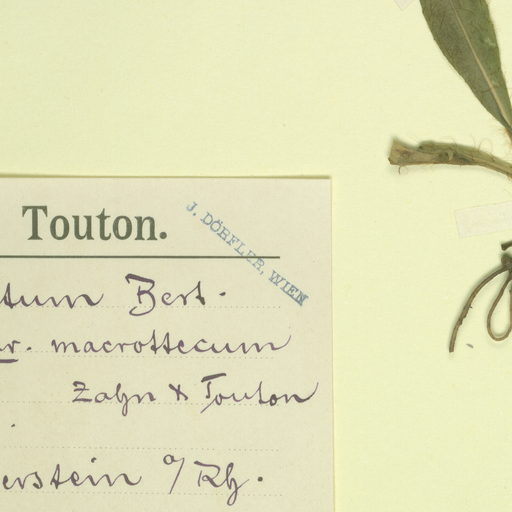 Touton.
J. DÖRFLER, WIEN
tum Bert.
ar. macrottecum
Zahn & Touton
erstein a/Rh.